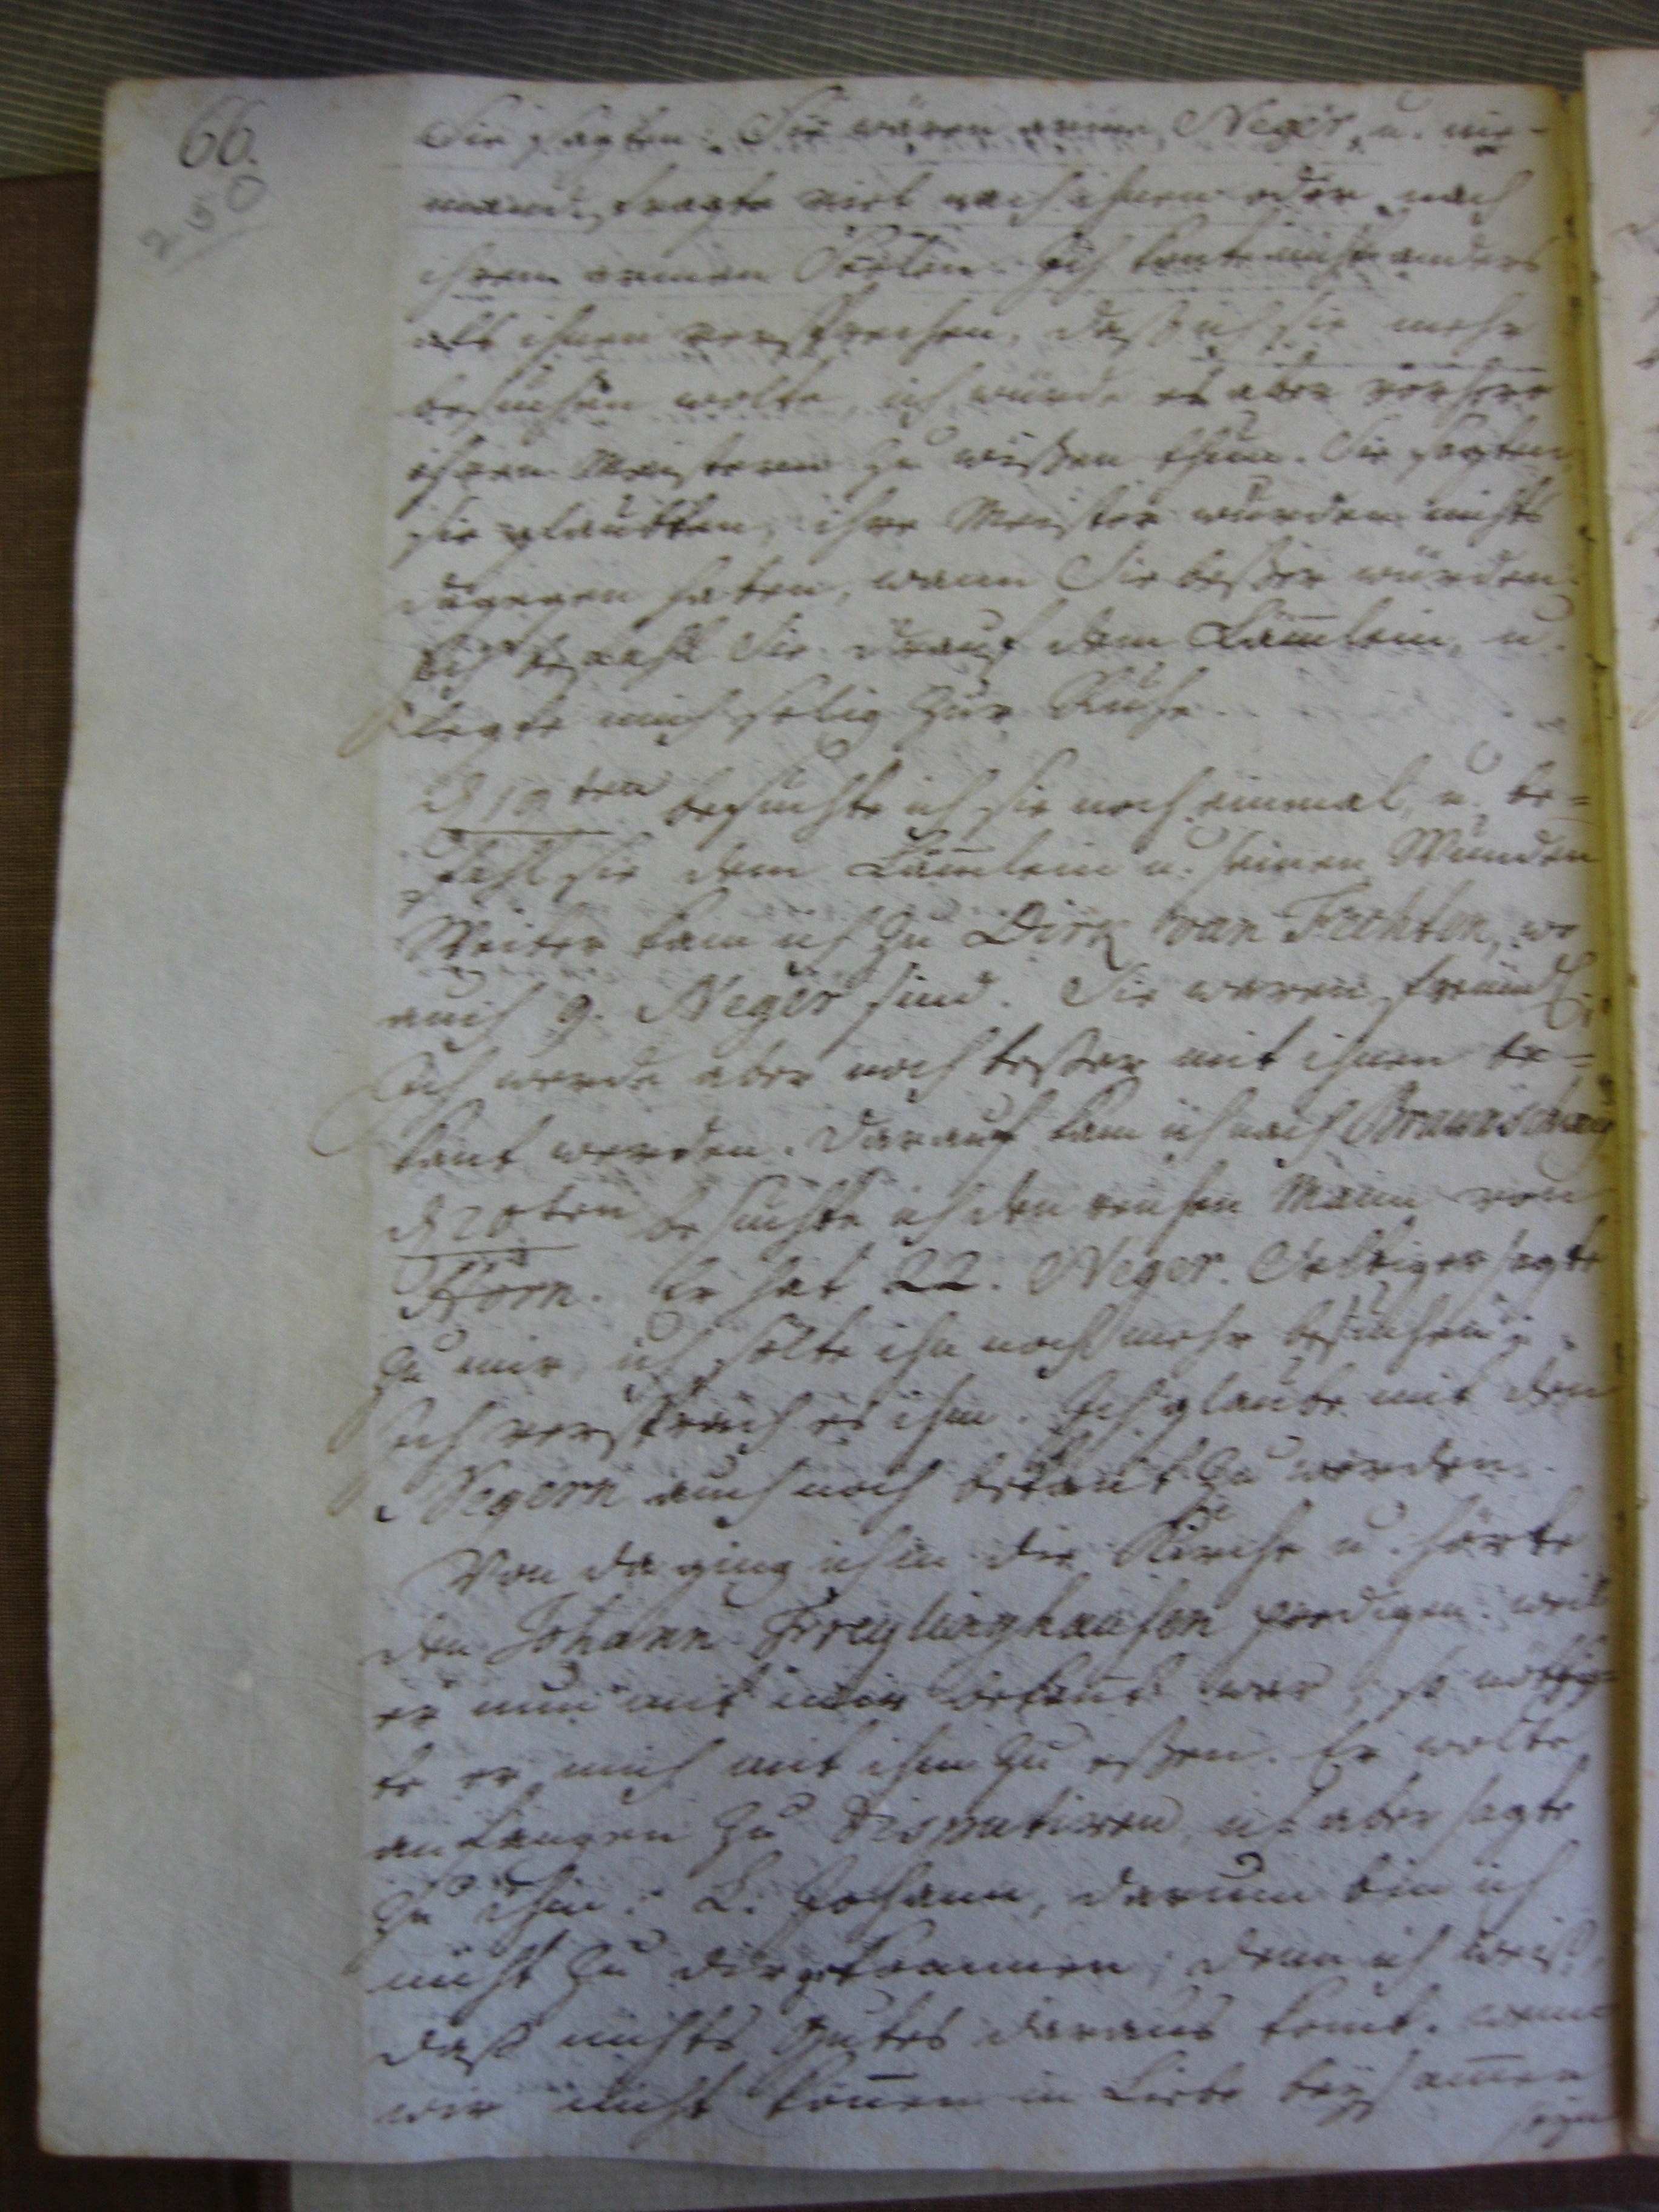 66.
230
Sie sagten: Sie wären arme Neger, u. nie-
mand fragte viel nach ihnen oder nach
ihren armen Seelen. Ich konte nicht anders
als ihnen versprechen, daß ich sie mehr
besuchen wolte, ich würde es aber vorhero
ihren Meistern zu wißen thun. Sie sagten
sie glaubten, ihre Meister würden nichts
dagegen haben, wann Sie beßer würden.
Ich befahl Sie drauf dem Lämlein, u.
legte mich selig zur Ruhe.
d 19ten besuchte ich sie noch einmal, u. be=
fahl sie dem Lämlein u. seinen Wunden
Weiter kam ich zu Dirk van Fechten, wo
auch 9. Neger sind. Sie waren freundl.
Ich werde aber noch beßer mit ihnen be=
kant werden. Darauf kam ich nach Braunschweig
d 20ten besuchte ich den reichen Mann von
Horn. Er hat 22. Neger. Selbiger sagte
zu mir, ich solte ihn noch mehr besuchen;
Ich versprach es ihm. Ich glaube mit den
Negern auch noch bekant zu werden.
Von da ging ich in die Kirche u. hörte
den Johann Freylinghausen predigen. weil
er nun mit mir bekant war, so nöthig-
te er mich mit ihm zu eßen. Er wolte
anfangen zu disputiren, ich aber sagte
zu ihm: L. Johann, darum bin ich
nicht zu dir gekommen; denn ich weiß,
daß nichts Gutes daraus komt. wenn
wir nicht können in Liebe beysammen
seyn